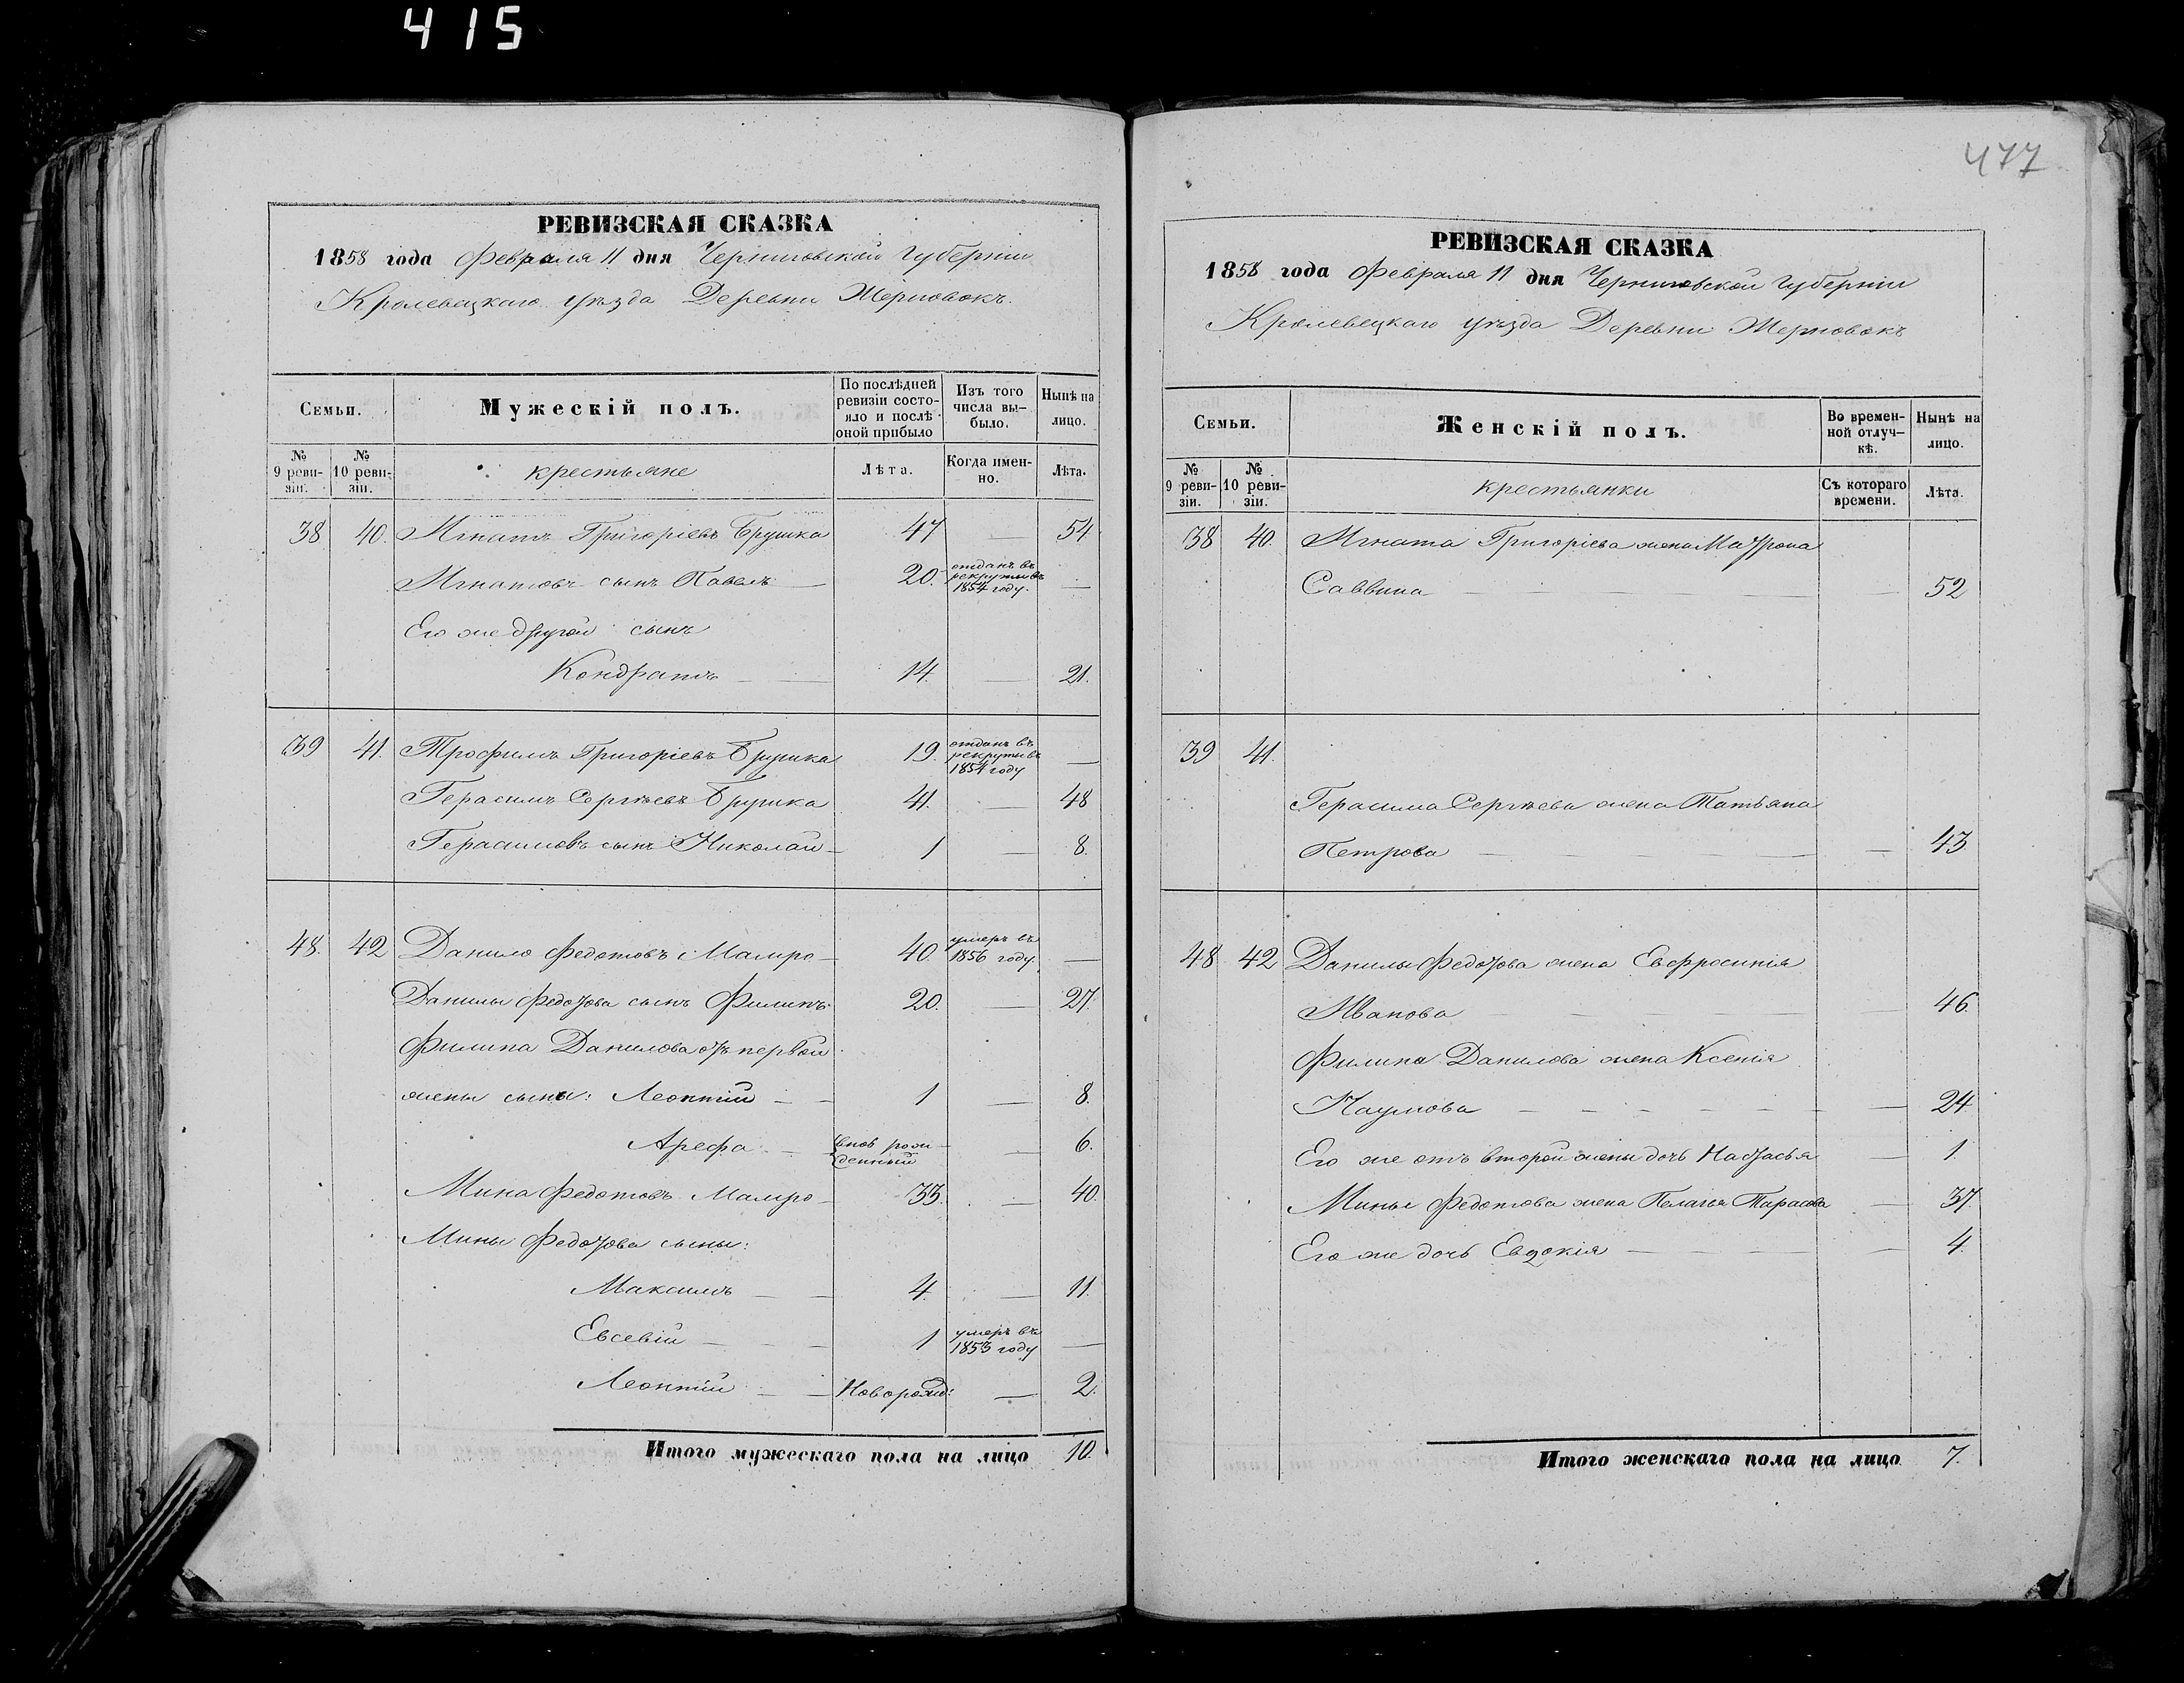 415
РЕВИЗСКАЯ СКАЗКА
1858 года Февраля 11 дня Черниговской Губерніи
Кролевецкаго уѣзда Деревни Жерновокъ.
Семьи.
Мужескій полъ.
По послѣдней ревизіи состояло и послѣ оной прибыло
Изъ того числа вы-было.
Нынѣ на лицо.
№ 9 реви-зіи.
№ 10 реви-зіи.
крестьяне
Лѣта.
Когда имен-но.
Лѣта.
38 40. Игнатъ Григоріевъ Брушка 47 — 54
Игнатовъ сынъ Павелъ — 20. отданъ въ рекруты въ 1854 году. —
Его же другой сынъ
Кондратъ — — 14. — 21.
39 41. Трофимъ Григоріевъ Брушка 19. отданъ въ рекруты въ 1854 году —
Герасимъ Сергѣевъ Брушка 41. — 48
Герасимовъ сынъ Николай — 1 — 8.
48. 42 Данило Федотовъ Мамро — 40. умеръ въ 1856 году. —
Данилы Федотова сынъ Филипъ 20. — 27.
Филипа Данилова отъ первой
жены сыны: Леонтій — — 1 — 8.
Арефа — вновь рож-денный — 6.
Мина Федотовъ Мамро — 33. — 40.
Мины Федотова сыны:
Максимъ — — 4. — 11.
Евсевій — — 1 умеръ въ 1853 году —
Леонтій — — Новорожд: — 2.
Итого мужескаго пола на лицо 10.
477
РЕВИЗСКАЯ СКАЗКА
1858 года Февраля 11 дня Черниговской Губерніи
Кролевецкаго уѣзда Деревни Жерновокъ
Семьи.
Женскій полъ.
Во времен-ной отлуч-кѣ.
Нынѣ на лицо.
№ 9 реви-зіи.
№ 10 реви-зіи.
крестьянки
Съ котораго времени.
Лѣта.
38 40. Игната Григоріева жена Матрона
Саввина — — — — — 52
39 41.
Герасима Сергѣева жена Татьяна
Петрова — — — — — 43
48 42 Данилы Федотова жена Евфросинія
Иванова — — — — — 46.
Филипа Данилова жена Ксенія
Наумова — — — — — — — 24
Его же отъ второй жены дочь Настасья — 1.
Мины Федотова жена Пелагея Тарасова — 37.
Его же дочь Евдокія — — — — 4.
Итого женскаго пола на лицо 7.